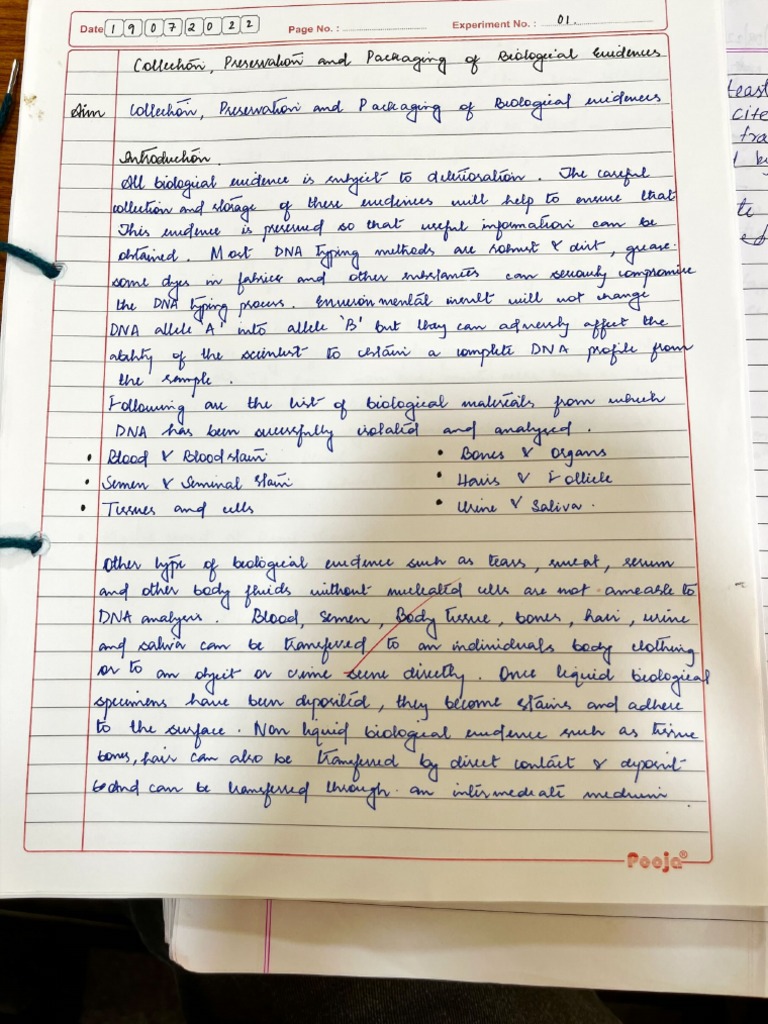 Date 1 9 0 7 2 0 2 2 Page No. : Experiment No. : 01.
Collection, Preservation and Packaging of Biological Evidences
Aim Collection, Preservation and Packaging of Biological evidences
Introduction
All biological evidence is subject to deterioration. The careful
collection and storage of these evidences will help to ensure that
This evidence is preserved so that useful information can be
obtained. Most DNA typing methods are robust & dirt, grease.
some dyes in fabrics and other substances can seriously compromise
the DNA typing process. Environmental insult will not change
DNA allele 'A' into allele 'B' but they can adversely affect the
ability of the scientist to obtain a complete DNA profile from
the sample.
Following are the list of biological materials from which
DNA has been successfully isolated and analysed.
• Blood & Blood stain • Bones & Organs
• Semen & Seminal stain • Hairs & Follicle
• Tissues and cells • Urine & Saliva.
Other type of biological evidence such as tears, sweat, serum
and other body fluids without nucleated cells are not ameable to
DNA analysis. Blood, semen, Body tissue, bones, hair, urine
and saliva can be transferred to an individuals body clothing
or to an object or crime scene directly. Once liquid biological
specimens have been deposited, they become stains and adhere
to the surface. Non liquid biological evidence such as tissue
bones, hair can also be transferred by direct contact & deposit
and can be transferred through an intermediate medium.
Pooja®